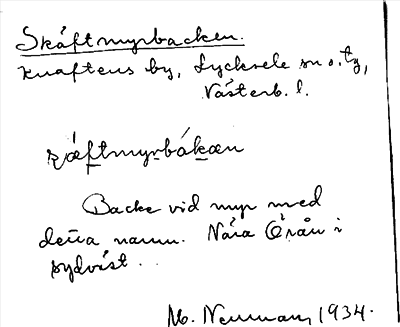 Skäftmyrbacken.
Knaftens by, Lycksele sn o. tg,
Västerb. l.
Backe vid myr med
denna namn. Nära Örån i
sydväst..
M. Neuman, 1934.